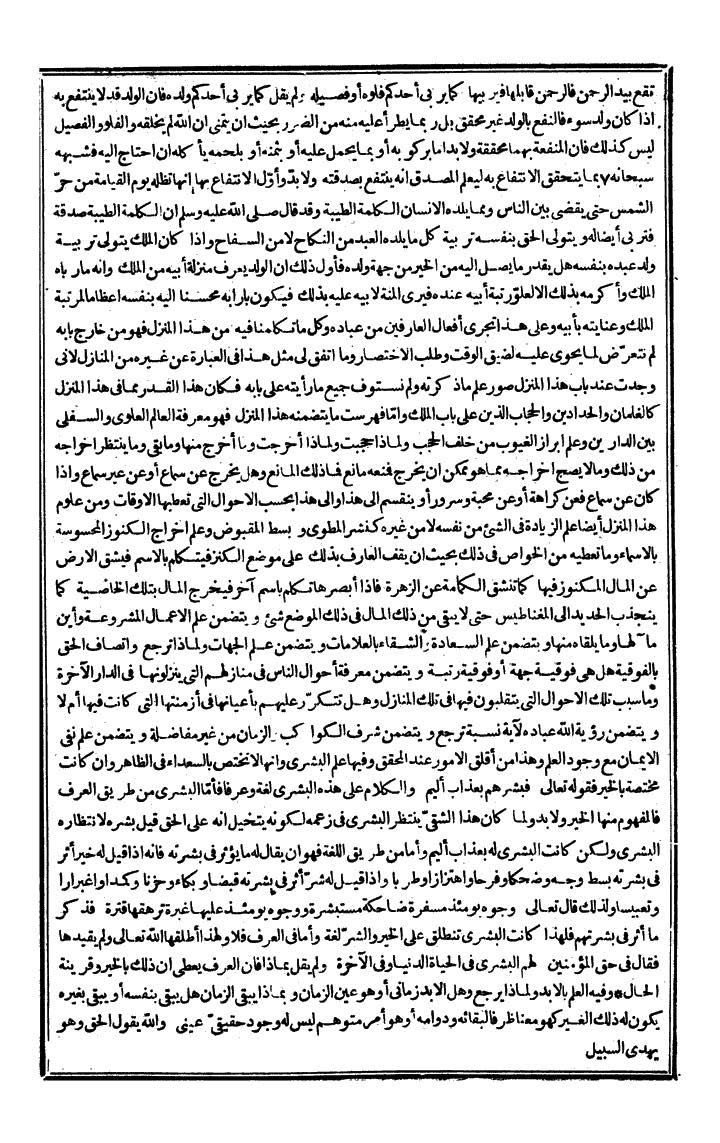 تقع بيد الرحمن فالرحمن قابلها فيربيها كما يربى أحدكم فلوه أو فصيله ولم يقل كما يربى أحدكم ولده فان الولد قد لا ينتفع به
اذا كان ولد سوء فالنفع بالولد غير محقق بل ربما يطرأ عليه منه من الضرر بحيث ان يتمنى ان الله لم يخلقه والفلو والفصيل
ليس كذلك فان المنفعة بهما محققة ولابد اما بركوبه أو بما يحمل عليه أو بثمنه أو بلحمه يأكله ان احتاج اليه فشبهه
سبحانه بما يتحقق الانتفاع به ليعلم المصدق انه ينتفع بصدقته ولابد وأول الانتفاع بها انها تظله يوم القيامة من حر
الشمس حتى يقضى بين الناس ومما يلده الانسان الكلمة الطيبة وقد قال صلى الله عليه وسلم ان الكلمة الطيبة صدقة
فتربى أيضا له ويتولى الحق بنفسه تربية كل ما يلده العبد من النكاح لا من السفاح واذا كان الملك يتولى تربية
ولد عبده بنفسه هل يقدر ما يصل اليه من الخير من جهة ولده فأول ذلك ان الولد يعرف منزلة أبيه من الملك وانه ما رباه
الملك وأكرمه بذلك الا لعلو رتبة أبيه عنده فيرى المنة لابيه عليه بذلك فيكون بارا به محسنا اليه بنفسه اعظاما لمرتبة
الملك وعنايته بأبيه وعلى هذا تجرى أفعال العارفين من عباده وكل ما تكلمنا فيه من هذا المنزل فهو من خارج بابه
لم نتعرض لما يحوى عليه لضيق الوقت وطلب الاختصار وما اتفق لى مثل هذا فى العبارة عن غيره من المنازل لانى
وجدت عند باب هذا المنزل صور علم ماذكرته ولم نستوف جميع ما رأيته على بابه فكان هذا القدر مما فى هذا المنزل
كالغلمان والحدادين والحجاب الذين على باب الملك واما فهرست ما يتضمنه هذا المنزل فهو معرفة العالم العلوى والسفلى
بين الدارين وعلم ابراز الغيوب من خلف الحجب ولماذا حجبت ولماذا أخرجت وما أخرج منها وما بقى وما ينتظر اخراجه
من ذلك وما لا يصح اخراجه مما هو ممكن ان يخرج فمنعه مانع فما ذلك المانع وهل يخرج عن سماع أو عن غير سماع واذا
كان عن سماع فعن كراهة أو عن محبة وسرور أو ينقسم الى هذا والى هذا بحسب الاحوال التى تعطيها الاوقات ومن علوم
هذا المنزل أيضا علم الزيادة فى الشئ من نفسه لا من غيره كنشر المطوى وبسط المقبوض وعلم اخراج الكنوز المحسوسة
بالاسماء وما تعطيه من الخواص فى ذلك بحيث ان يقف العارف بذلك على موضع الكنز فيتكلم بالاسم فيشق الارض
عن المال المكنوز فيها كما تنشق الكمامة عن الزهرة فاذا أبصرها تكلم باسم آخر فيخرج المال بتلك الخاصية كما
ينجذب الحديد الى المغناطيس حتى لا يبقى من ذلك المال فى ذلك الموضع شئ ويتضمن علم الاعمال المشروعة وأين
مآلها وما يلقاه منها ويتضمن علم السعادة والشقاء بالعلامات ويتضمن علم الجهات ولماذا ترجع واتصاف الحق
بالفوقية هل هى فوقية جهة أو فوقية رتبة ويتضمن معرفة أحوال الناس فى منازلهم التى ينزلونها فى الدار الآخرة
وما سبب تلك الاحوال التى يتقلبون فيها فى تلك المنازل وهل تتكرر عليهم بأعيانها فى أزمنتها التى كانت فيها أم لا
ويتضمن رؤية الله عباده لآية نسبة ترجع ويتضمن شرف الكواكب والزمان من غير مفاضلة ويتضمن علم نفى
الايمان مع وجود العلم وهذا من أقلق الامور عند المحقق وفيها علم البشرى وانها لا تختص بالسعداء فى الظاهر وان كانت
مختصة بالخير فقوله تعالى فبشرهم بعذاب أليم والكلام على هذه البشرى لغة وعرفا فأما البشرى من طريق العرف
فالمفهوم منها الخير ولابد ولما كان هذا الشقى ينتظر البشرى فى زعمه لكونه يتخيل انه على الحق قيل بشره لانتظاره
البشرى ولكن كانت البشرى له بعذاب أليم وأما من طريق اللغة فهو ان يقال له ما يؤثر فى بشرته فانه اذا قيل له خير أثر
فى بشرته بسط وجه وضحكا وفرحا واهتزازا وطربا واذا قيل له شر أثر فى بشرته قبضا وبكاء وحزنا وكمدا واغبرارا
وتعبيسا ولذلك قال تعالى وجوه يومئذ مسفرة ضاحكة مستبشرة ووجوه يومئذ عليها غبرة ترهقها قترة فذكر
ما أثر فى بشرتهم فلهذا كانت البشرى تنطلق على الخير والشر لغة وأما فى العرف فلا ولهذا أطلقها الله تعالى ولم يقيدها
فقال فى حق المؤمنين لهم البشرى فى الحياة الدنيا وفى الآخرة ولم يقل بماذا فان العرف يعطى ان ذلك بالخير وقرينة
الحال * وفيه العلم بالابد ولماذا يرجع وهل الابد زمانى أو هو عين الزمان وبماذا يبقى الزمان هل يبقى بنفسه أو يبقى بغيره
يكون له ذلك الغير كهو معنا ظرفا لبقائه ودوامه أو هو أمر متوهم ليس له وجود حقيقى عينى والله يقول الحق وهو
يهدى السبيل